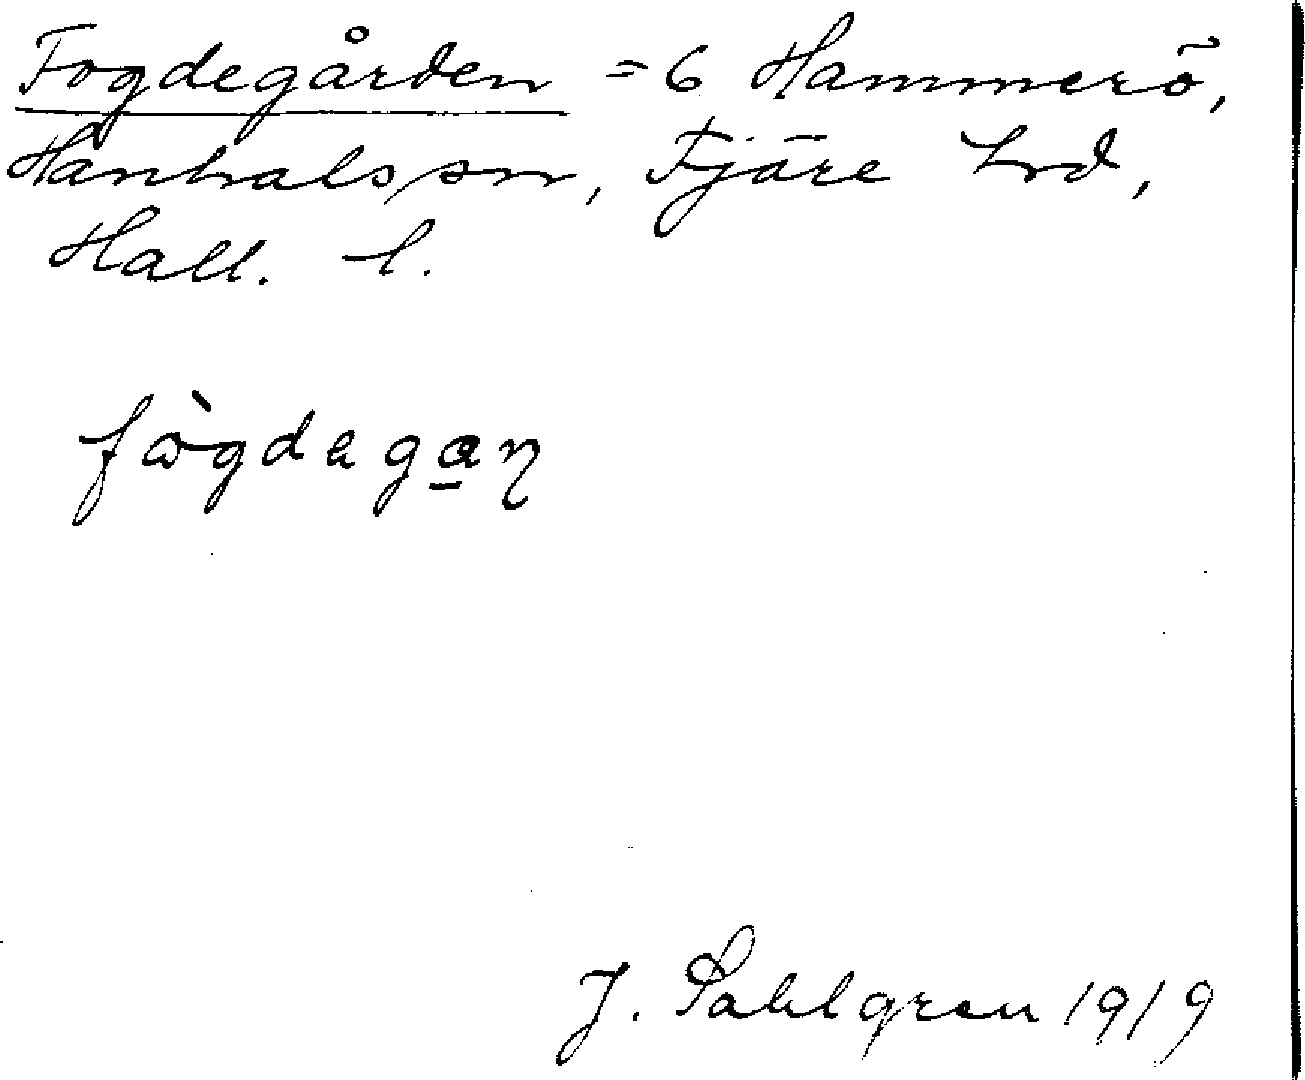 Fogdegården = 6 Hammerö,
Hanhals sn, Fjäre hd,
Hall. l.
fὼgdagan̡
J. Sahlgren 1919